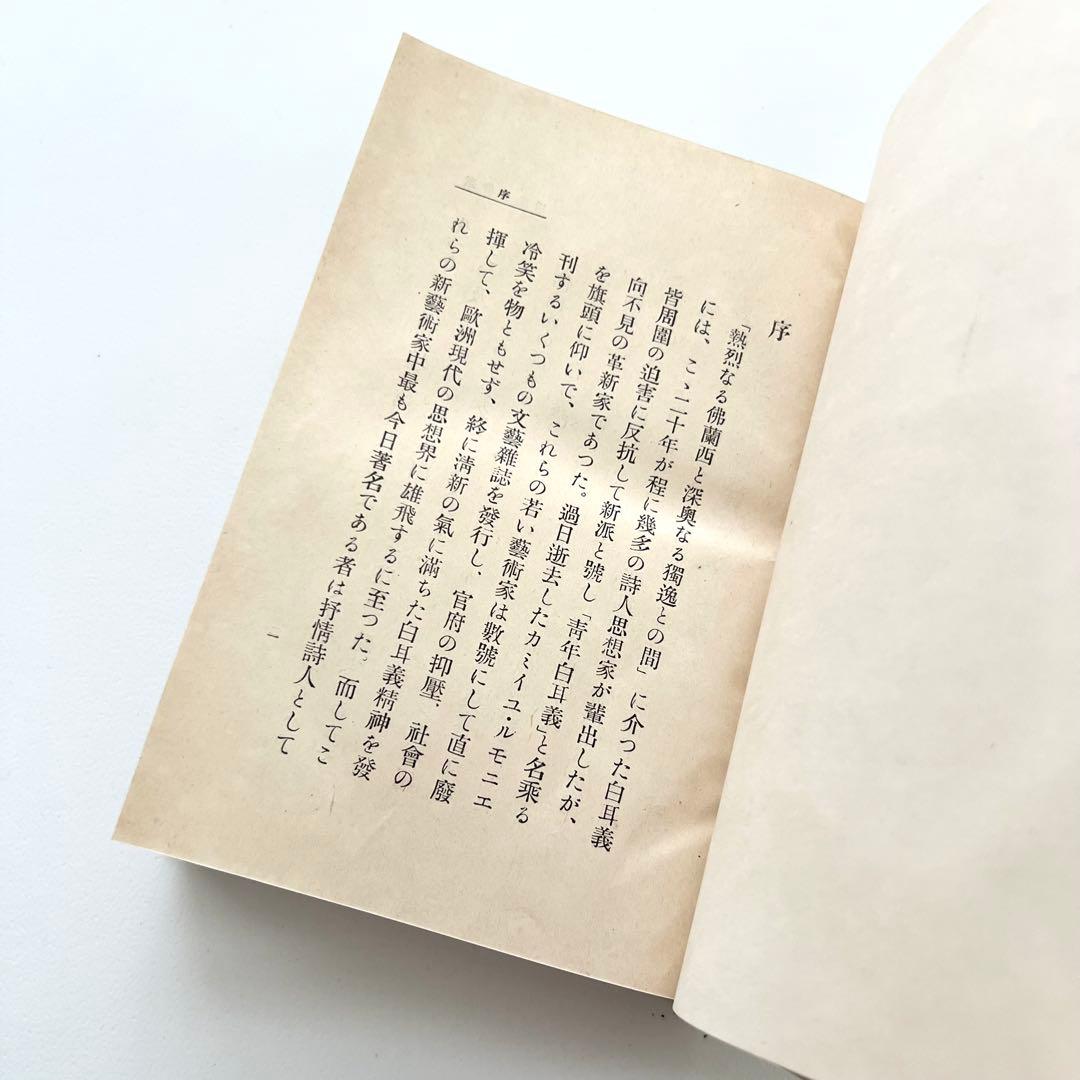 序
序
「熱烈なる佛蘭西と深奥なる獨逸との間」に介つた白耳義
には、こゝ二十年が程に幾多の詩人思想家が輩出したが、
皆周圍の迫害に反抗して新派と號し「靑年白耳義」と名乘る
向不見の革新家であつた。過日逝去したカミイユ・ルモニエ
を旗頭に仰いで、これらの若い藝術家は數號にして直に廢
刊するいくつもの文藝雜誌を發行し、官府の抑壓、社會の
冷笑を物ともせず、終に淸新の氣に滿ちた白耳義精神を發
揮して、歐洲現代の思想界に雄飛するに至つた。而してこ
れらの新藝術家中最も今日著名である者は抒情詩人として
一